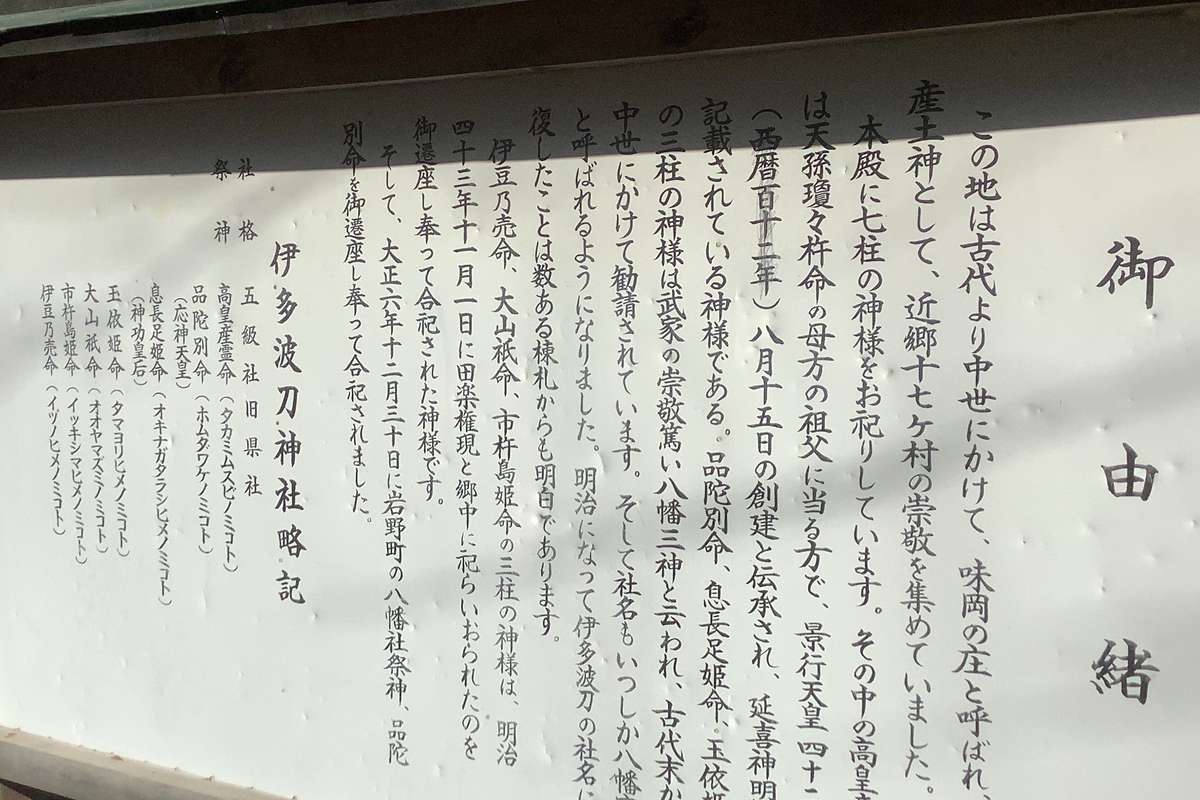 御由緒
この地は古代より中世にかけて、味岡の庄と呼ばれ、
産土神として、近郷十七ケ村の崇敬を集めていました。
本殿に七柱の神様をお祀りしています。その中の高皇産
は天孫瓊々杵命の母方の祖父に当る方で、景行天皇四十二
(西暦百十二年)八月十五日の創建と伝承され、延喜神明
記載されている神様である。品陀別命、息長足姫命、玉依姫
の三柱の神様は武家の崇敬篤い八幡三神と云われ、古代末か
中世にかけて勧請されています。そして社名もいつしか八幡
と呼ばれるようになりました。明治になって伊多波刀の社名に
復したことは数ある棟札からも明白であります。
伊豆乃売命、大山祇命、市杵島姫命の三柱の神様は、明治
四十三年十一月一日に田楽権現と郷中に祀らいおられたのを
御遷座し奉って合祀された神様です。
そして、大正六年十二月三十日に岩野町の八幡社祭神、品陀
別命を御遷座し奉って合祀されました。
伊多波刀神社略記
社格 五級社旧県社
祭神 高皇産霊命(タカミムスビノミコト)
品陀別命(ホムタワケノミコト)
(応神天皇)
息長足姫命(オキナガタラシヒメノミコト)
(神功皇后)
玉依姫命(タマヨリヒメノミコト)
大山祇命(オオヤマズミノミコト)
市杵島姫命(イッキシマヒメノミコト)
伊豆乃売命(イヅノヒメノミコト)